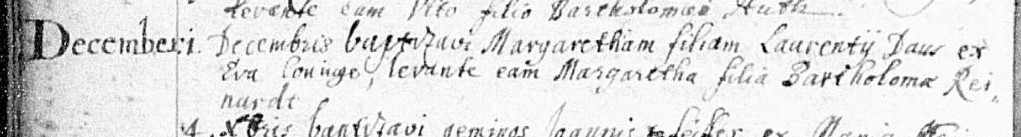 levante eam Vito filio Bartholomæi Huth
December. 1. Decembris baptizavi Margaretham filiam Laurentij Daus ex
Eva coniuge, levante eam Margaretha filia Bartholomæ Rei-
nardt
4. Xbris baptizavi geminos Joannis ex Maria